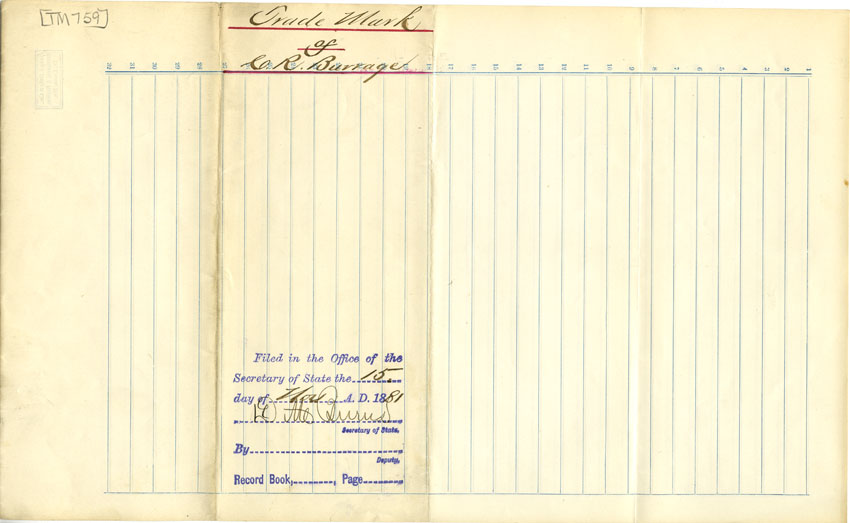 [TM759]
Trade Mark
of
R.
32 31 30 29 28 18 17 16 15 14 13 12 11 10 9 8 7 6 5 4 3 2 1
Filed in the Office of the
Secretary of State the 15
day of A. D. 1881
Burns
Secretary of State.
By
Deputy.
Record Book, Page